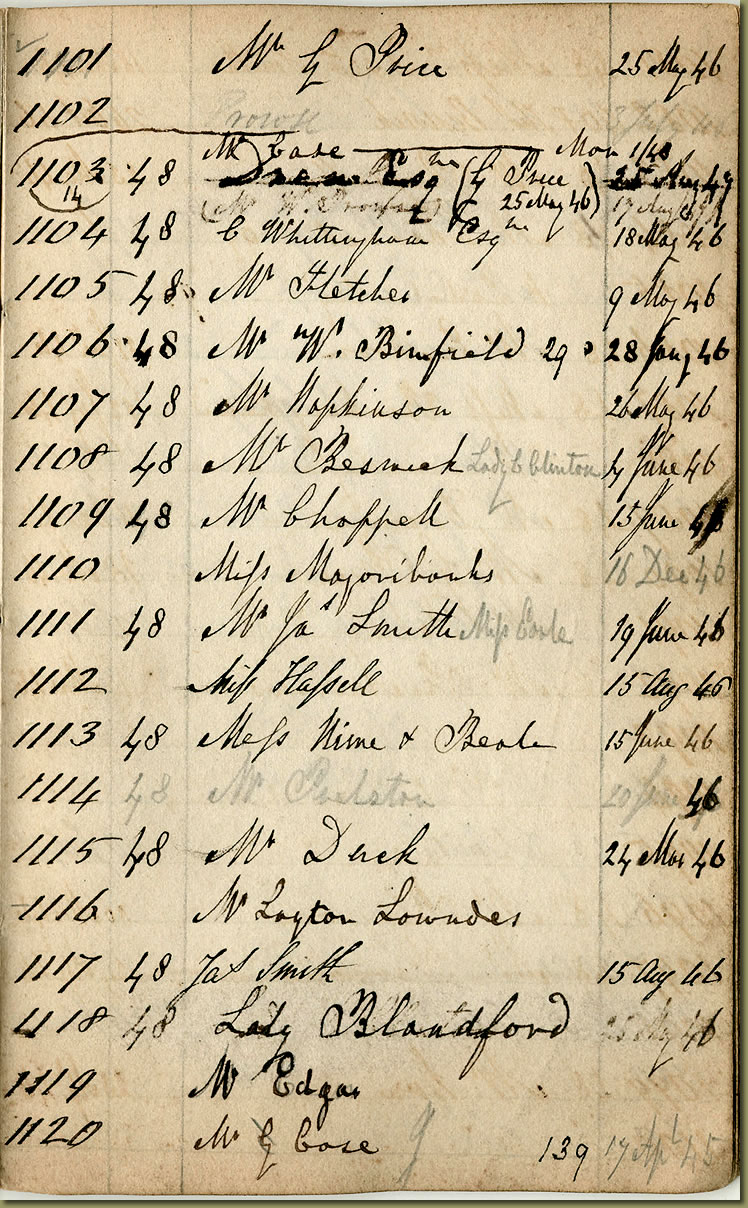 1101 Mr G Price 25 May 46
1102 Prowse July
Mr Case Mar 1/48
1103 48 Esqre (G Price
14 (Mr W. Prowse) 25 May 46) 17 Aug
1104 48 C Whittingham Esqre 18 May 46
1105 48 Mr Fletcher 9 May 46
1106 48 Mr W. Binfield 29 28 Jany 46
1107 48 Mr Hopkinson 26 May 46
1108 48 Mr Beswick Lady C Clinton 4 June 46
1109 48 Mr Chappell 15 June 46
1110 Miss Majoribanks 16 Dec 46
1111 48 Mr Jas Smith Miss 19 June 46
1112 Miss Hassell 15 Aug 46
1113 48 Mess Hime & Beale 15 June 46
1114 48 Mr 20 June 46
1115 48 Mr Duck 24 Mar 46
1116 Mr Layton Lowndes
1117 48 Jas Smith 15 Aug 46
1118 48 Lady Blandford 25 May 46
1119 Mr Edgar
1120 Mr G Case 139 17 Apl 45